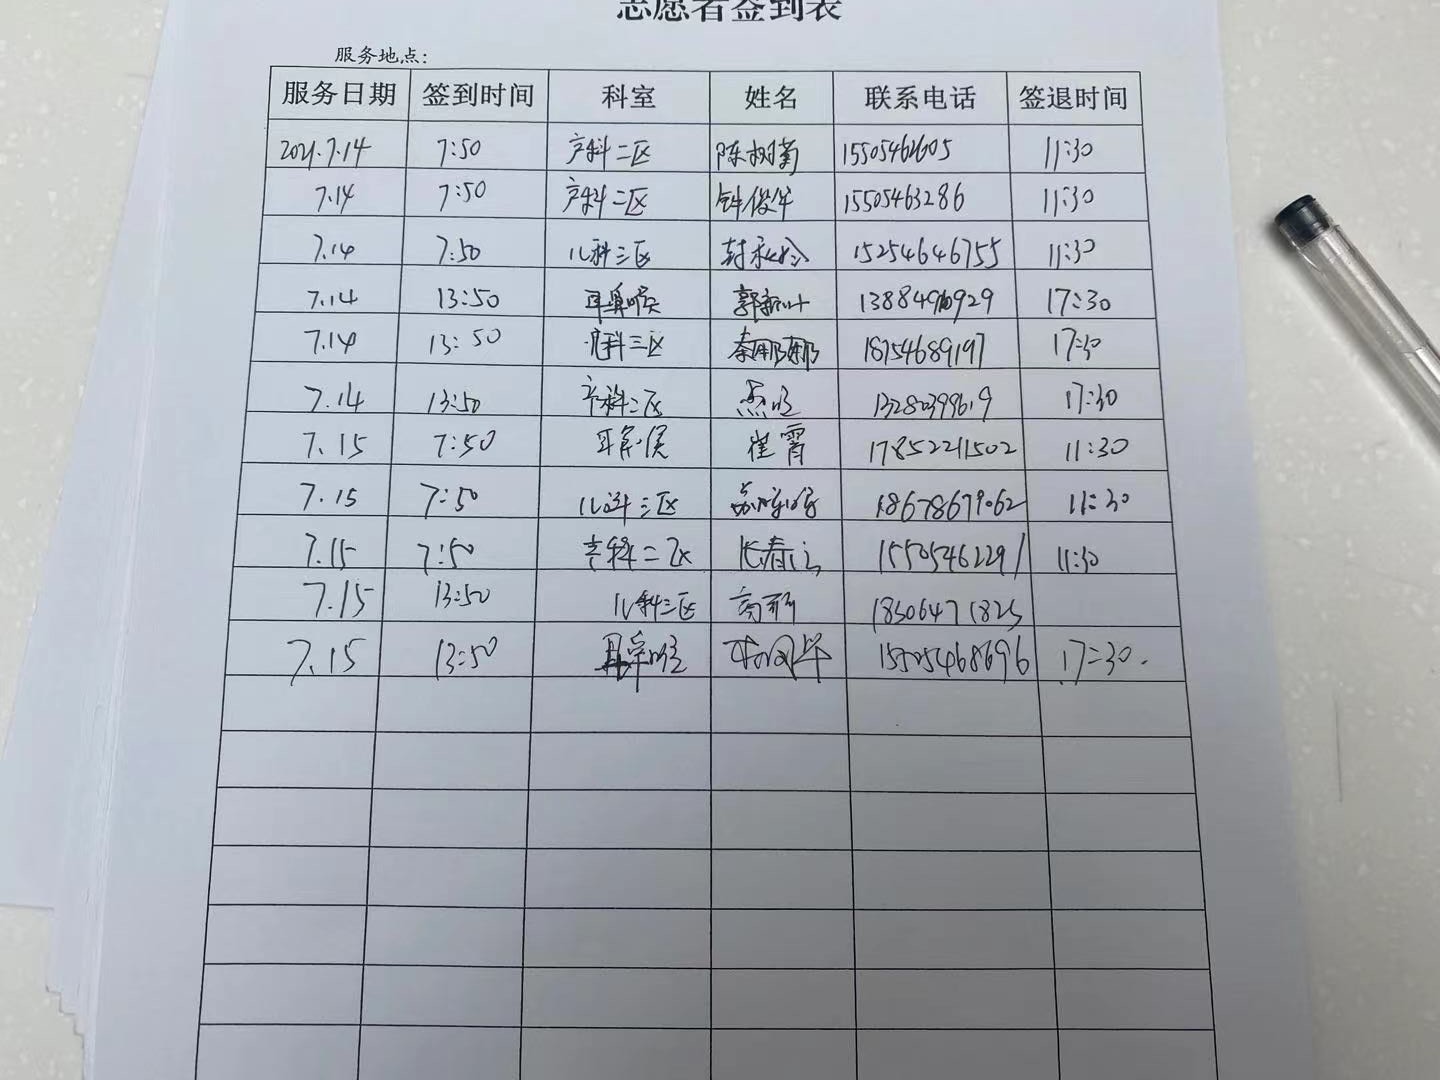 志愿者签到表
服务地点：
服务日期 签到时间 科室 姓名 联系电话 签退时间
2021.7.14 7:50 产科二区 陈树菊 15505462605 11:30
7.14 7:50 产科二区 钟俊华 15505463286 11:30
7.14 7:50 儿科三区 封 15254646755 11:30
7.14 13:50 耳鼻喉 郭新叶 13:50 17:30
7.14 13:50 儿科三区 秦娜娜 18754689197 17:30
7.14 13:50 产科二区 13280399619 17:30
7.15 7:50 耳鼻喉 崔霄 17852211502 11:30
7.15 7:50 儿科三区 18678679062 11:30
7.15 7:50 产科二区 15505462291 11:30
7.15 13:50 儿科三区 高 18306471825
7.15 13:50 15505468696 17:30.